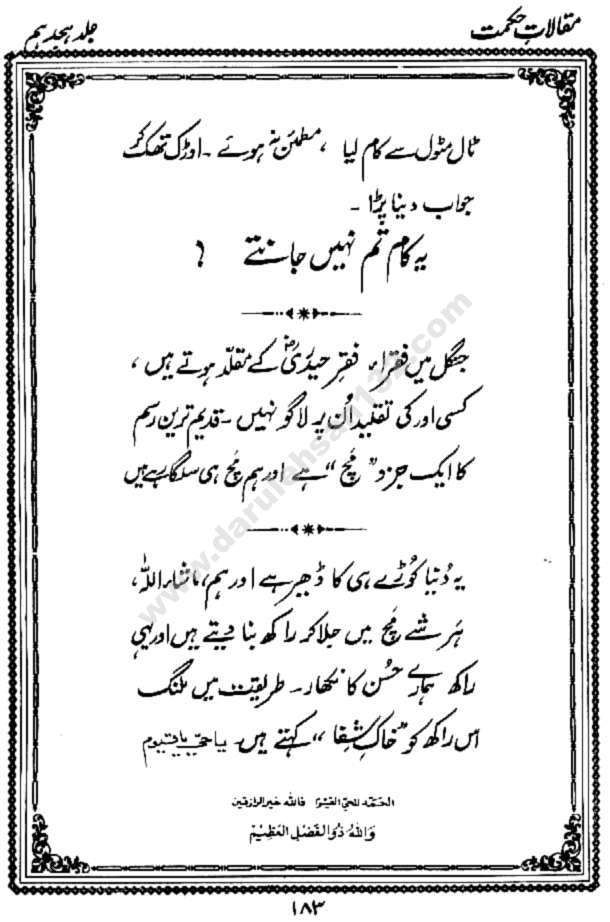 مقالاتِ حکمت
جلد ہجدہم
ٹال مٹول سے کام لیا ، مطمئن نہ ہوئے ۔ اوڑک تھک کر
جواب دینا پڑا ۔
یہ کام تم نہیں جانتے ؟
جنگل میں فقراء فقرِ حیدریؓ کے مقلّد ہوتے ہیں ،
کسی اور کی تقلید اُن پہ لاگو نہیں ۔ قدیم ترین رسم
کا ایک جزو ”مُچ“ ہے اور ہم مُچ ہی سلگا رہے ہیں
یہ دُنیا کوڑے ہی کا ڈھیر ہے اور ہم، ماشاء اللہ،
ہر شے مُچ میں جلا کر راکھ بنا دیتے ہیں اور یہی
راکھ ہمارے حُسن کا نکھار ۔ طریقت میں ملنگ
اس راکھ کو ”خاکِ شِفا“ کہتے ہیں۔ یا حیّ یا قیّوم
الحمد للحی القیوم فالله خیر الرازقین
وَاللهُ ذُو الفَضْلِ العَظِیْم
۱۸۳
www.darulehsan132.com